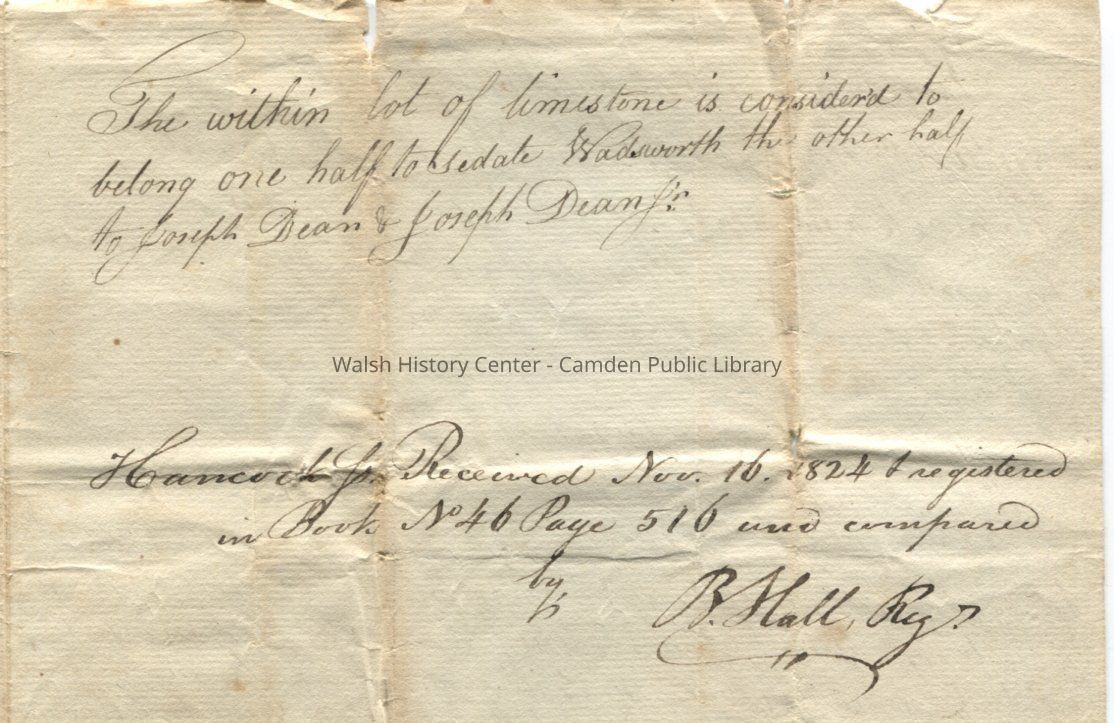 The within lot of limestone is consider'd to
belong one half to Sedate Wadsworth the other half
to Joseph Dean & Joseph Dean Jr.
Walsh History Center - Camden Public Library
Hancock Ss. Received Nov. 16. 1824 & registered
in Book No 46 Page 516 and compared
by
B. Hall, Regr.